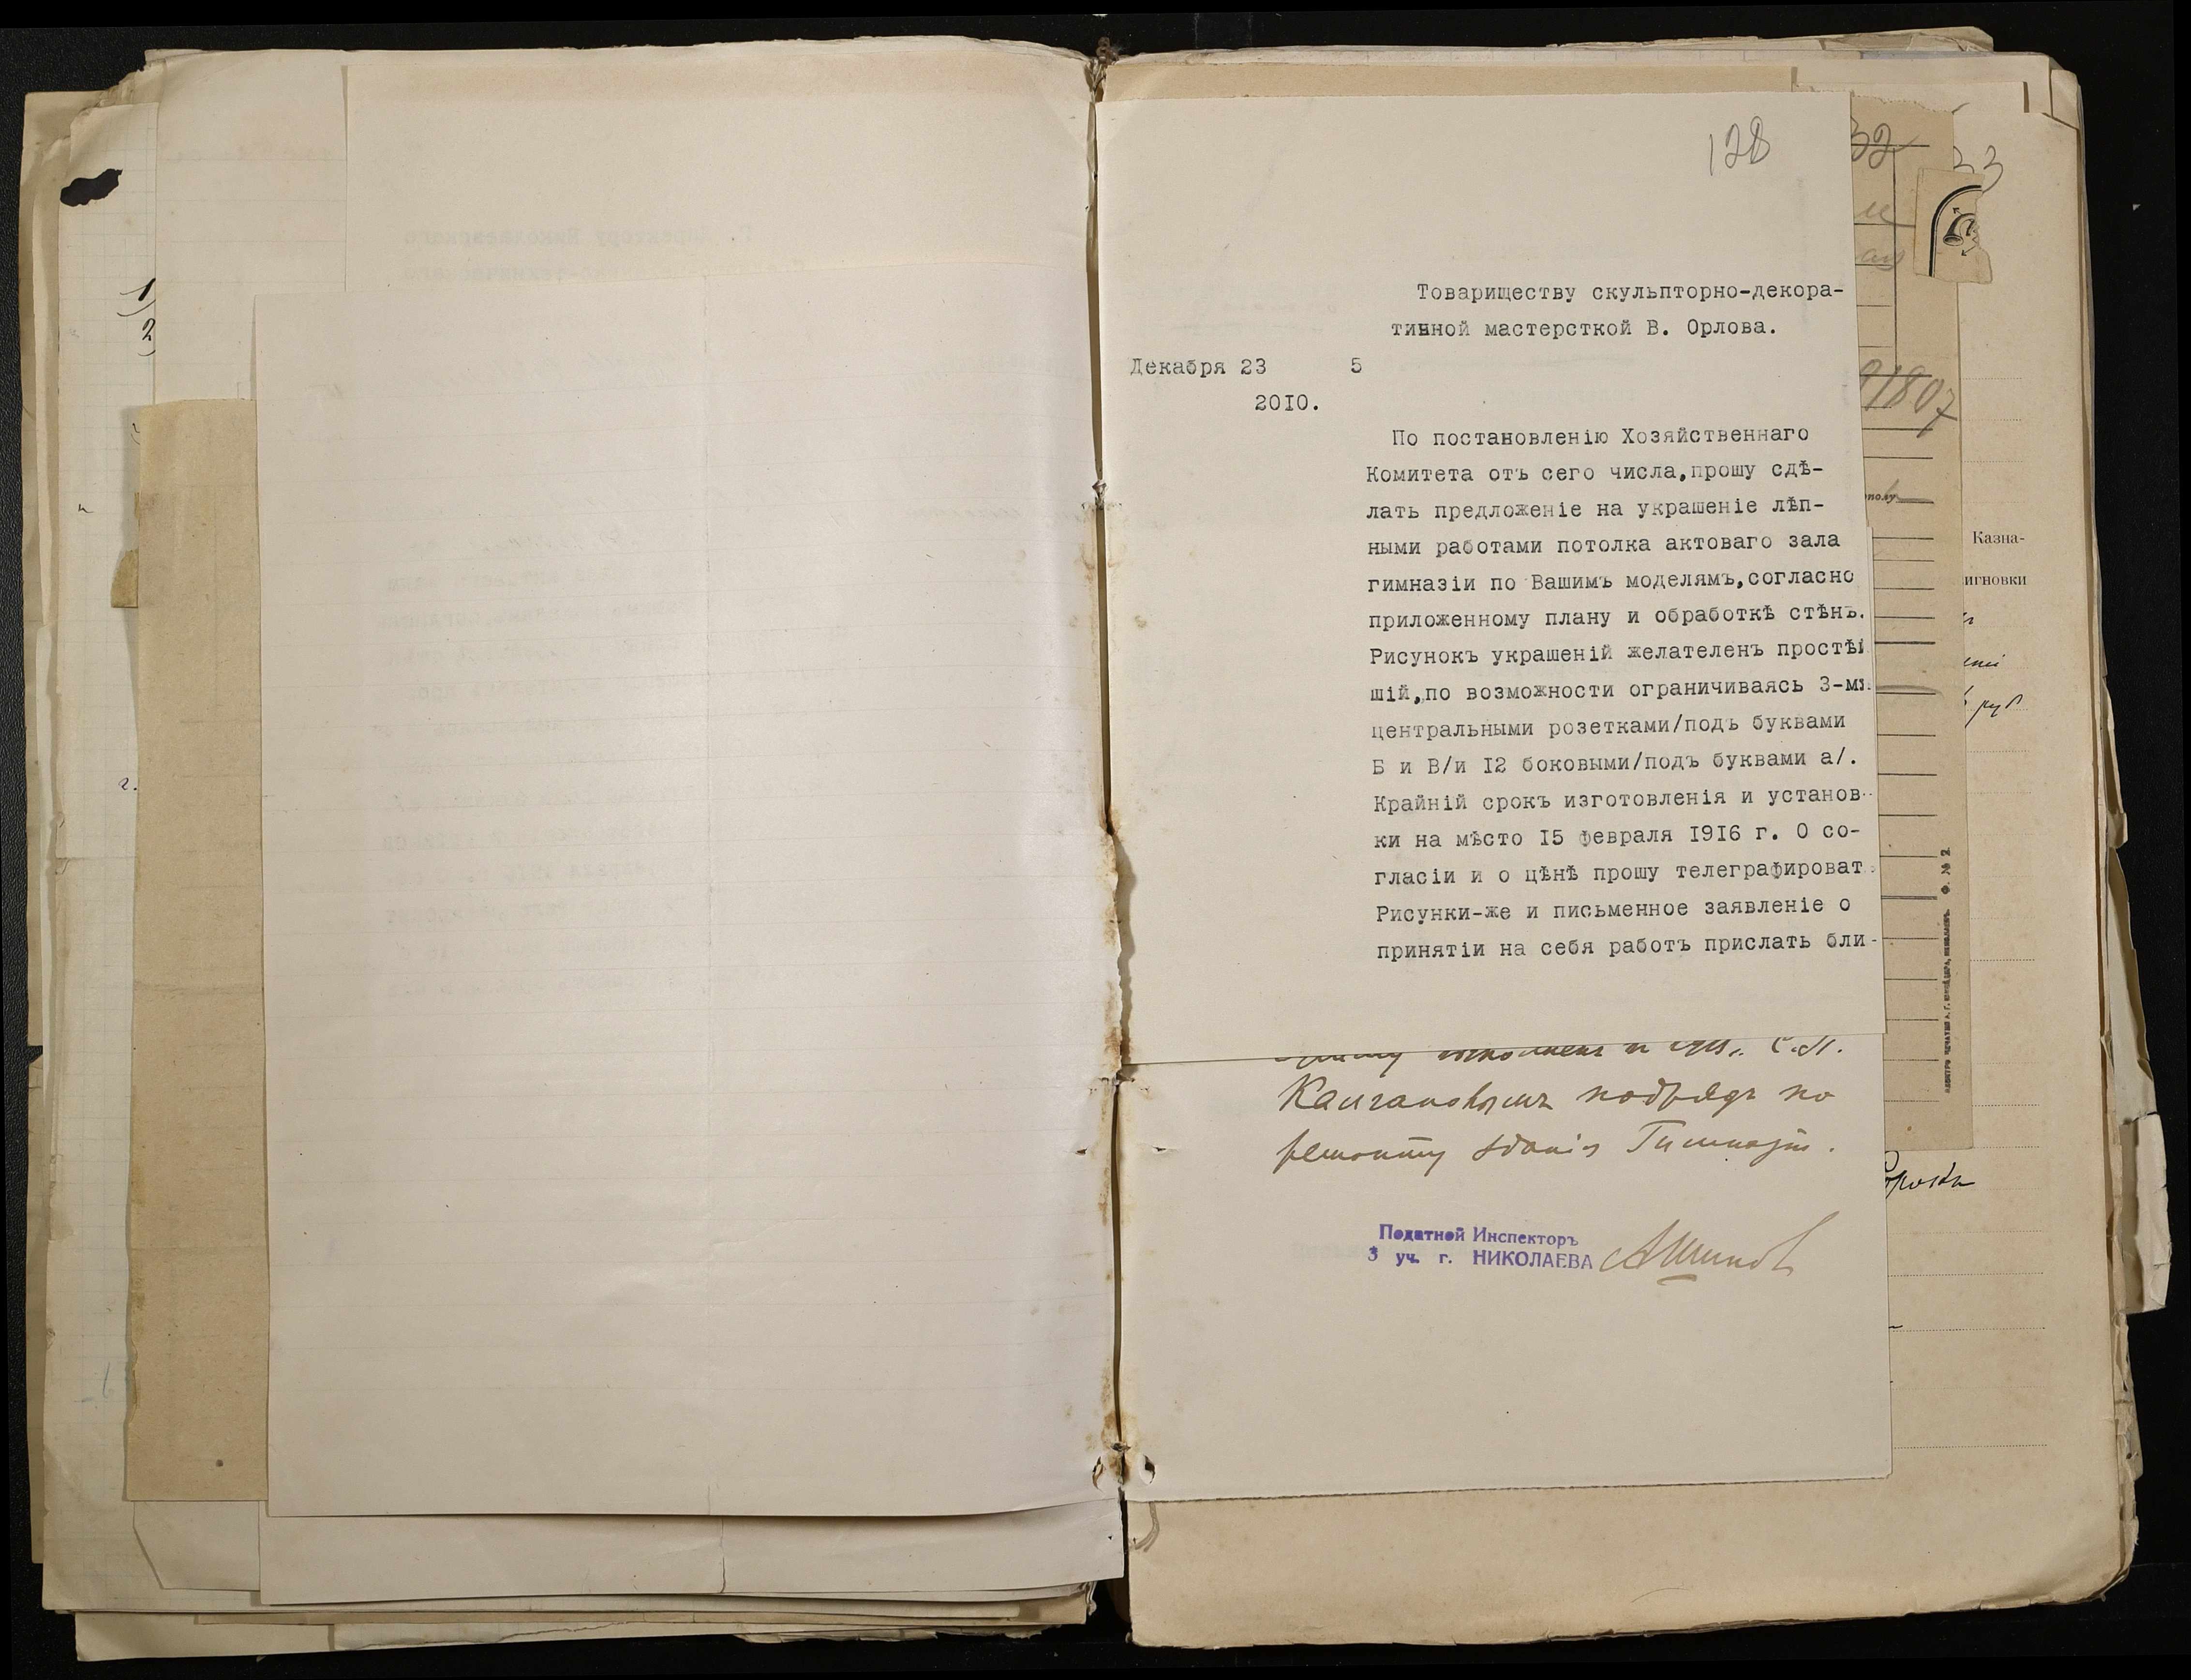 128
Товариществу скульпторно-декора-
тивной мастерсткой В. Орлова.
Декабря 23 5
2010.
По постановленію Хозяйственнаго
Комитета отъ сего числа,прошу сдѣ-
лать предложеніе на украшеніе лѣп-
ными работами потолка актоваго зала
гимназіи по Вашимъ моделямъ,согласно
приложенному плану и обработкѣ стѣнъ.
Рисунокъ украшеній желателенъ простѣй
шій,по возможности ограничиваясь 3-мя
центральными розетками/подъ буквами
Б и В/и I2 боковыми/подъ буквами а/.
Крайній срокъ изготовленія и установ-
ки на мѣсто I5 февраля I9I6 г. О со-
гласіи и о цѣнѣ прошу телеграфироват
Рисунки-же и письменное заявленіе о
принятіи на себя работъ прислать бли-
подрядъ по
ремонту зданія Гимназіи.
Податной Инспекторъ
3 уч. г. НИКОЛАЕВА
32
91807
Казна-
игновки
руб
1)
2)
г.